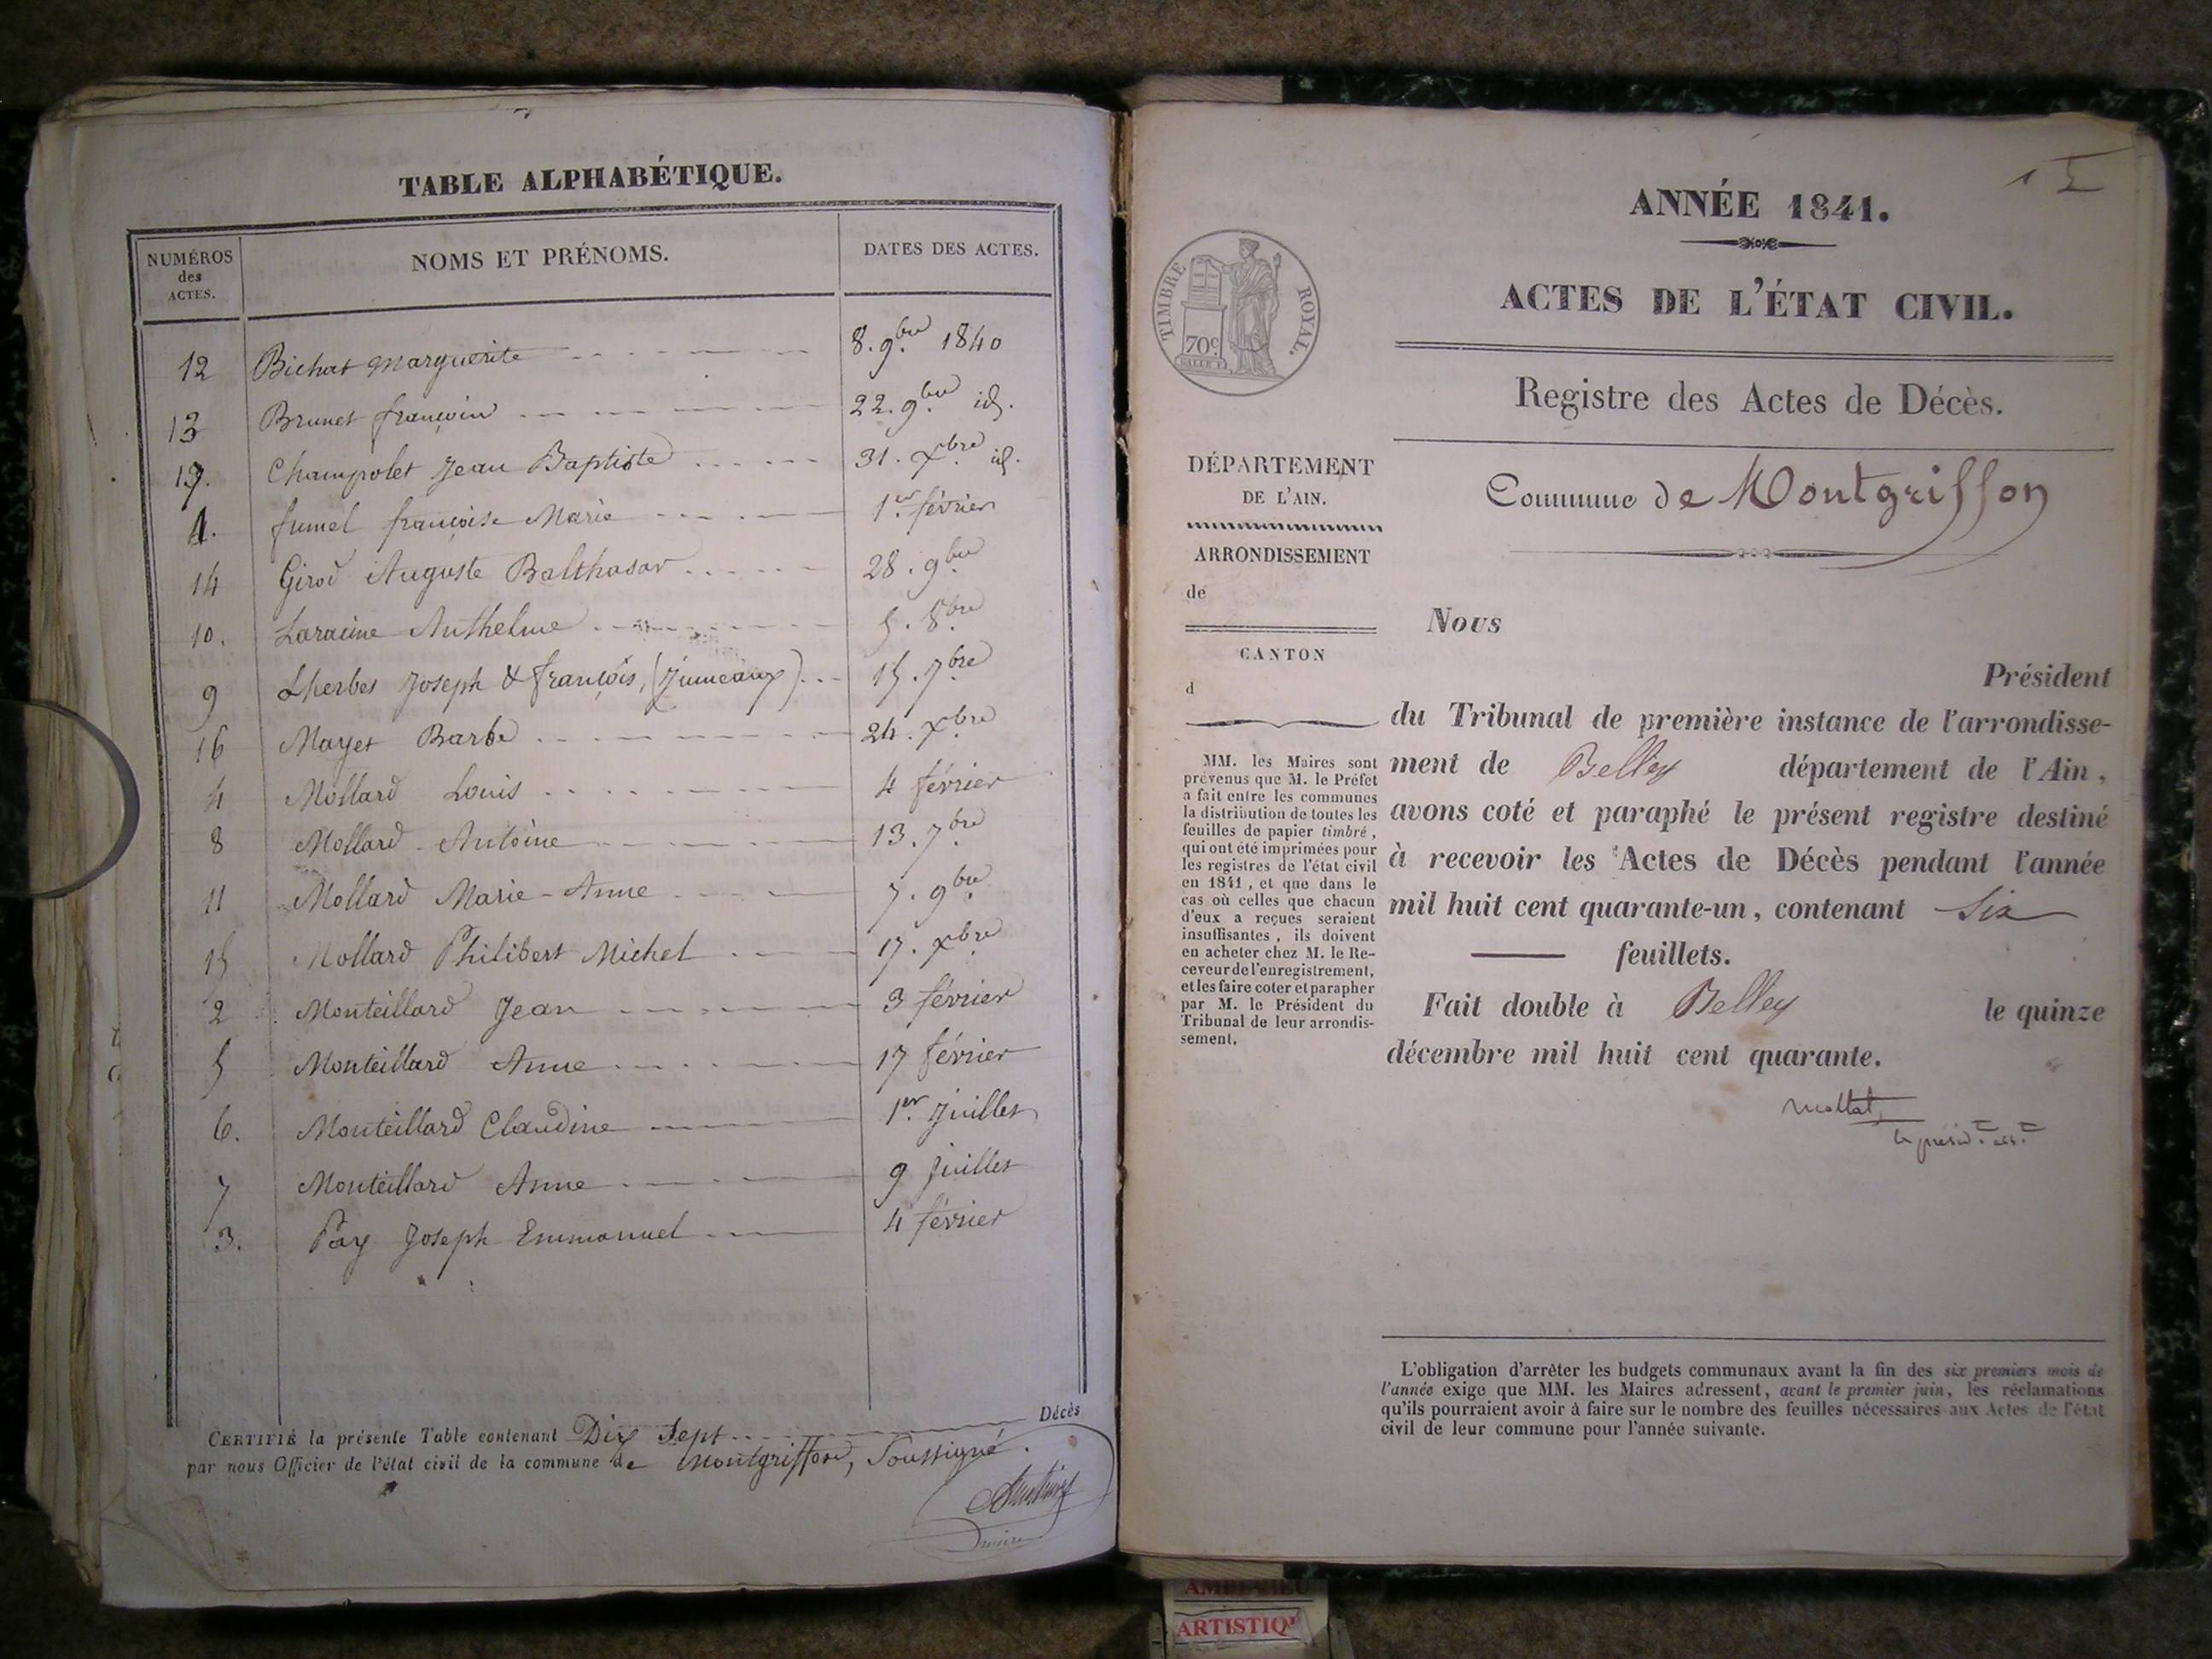 TABLE ALPHABÉTIQUE.
NUMÉROS des ACTES. NOMS ET PRÉNOMS. DATES DES ACTES.
12 Bichat Marguerite 8. 9bre 1840
13 Brunet françois 22. 9bre id.
17. Champolet Jean Baptiste 31. Xbre id.
1. fumel françoise Marie 1er février
14 Girod Auguste Balthasar 28. 9bre
10. Laracine Anthelme 5. 8bre
9 Lherbes Joseph & françois, (Jumeaux) 15. 7bre
16 Mayet Barbe 24. Xbre
4 Mollard Louis 4 février
8 Mollard Antoine 13. 7bre
11 Mollard Marie-Anne 7. 9bre
15 Mollard Philibert Michel 17. Xbre
2 Monteillard Jean 3 février
5 Monteillard Anne 17 février
6. Monteillard Claudine 1er Juillet
7 Monteillard Anne 9 Juillet
3. Pay Joseph Emmanuel 4 février
CERTIFIÉ la présente Table contenant Dix Sept Décès
par nous Officier de l'état civil de la commune de Montgriffon, Soussigné.
ANNÉE 1841.
ACTES DE L'ÉTAT CIVIL.
TIMBRE ROYAL.
70c
Registre des Actes de Décès.
DÉPARTEMENT
DE L'AIN.
ARRONDISSEMENT
de
CANTON
d
MM. les Maires sont
prévenus que M. le Préfet
a fait entre les communes
la distribution de toutes les
feuilles de papier timbré,
qui ont été imprimées pour
les registres de l'état civil
en 1841, et que dans le
cas où celles que chacun
d'eux a reçues seraient
insuffisantes, ils doivent
en acheter chez M. le Re-
ceveur de l'enregistrement,
et les faire coter et parapher
par M. le Président du
Tribunal de leur arrondis-
sement.
Commune de Montgriffon
Nous
Président
du Tribunal de première instance de l'arrondisse-
ment de Belley département de l'Ain,
avons coté et paraphé le présent registre destiné
à recevoir les Actes de Décès pendant l'année
mil huit cent quarante-un, contenant Six
feuillets.
Fait double à Belley le quinze
décembre mil huit cent quarante.
L'obligation d'arrêter les budgets communaux avant la fin des six premiers mois de
l'année exige que MM. les Maires adressent, avant le premier juin, les réclamations
qu'ils pourraient avoir à faire sur le nombre des feuilles nécessaires aux Actes de l'état
civil de leur commune pour l'année suivante.